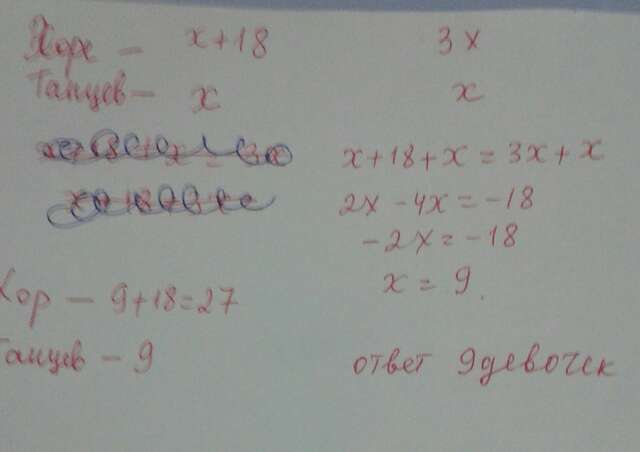 Хоре – x+18 3x
Танцев – x x
x+18+x=3x+x
2x-4x=-18
-2x=-18
x=9.
Хор – 9+18=27
Танцев – 9 ответ 9 девочек